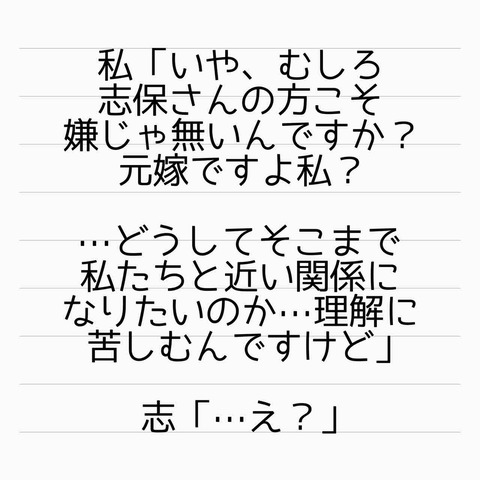 私「いや、むしろ
志保さんの方こそ
嫌じゃ無いんですか？
元嫁ですよ私？
…どうしてそこまで
私たちと近い関係に
なりたいのか…理解に
苦しむんですけど」
志「…え？」